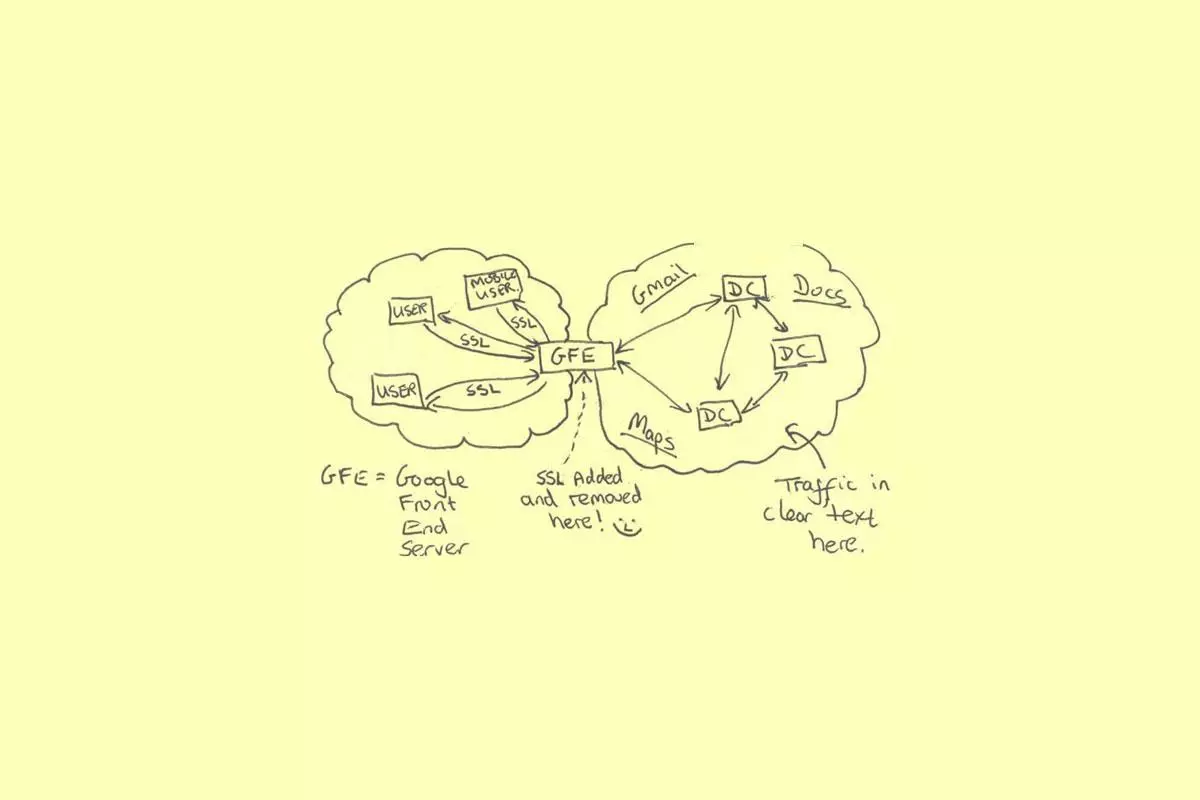 MOBILE
USER.
USER
SSL
SSL
USER
SSL
GFE
Gmail
DC
Docs
DC
DC
Maps
GFE = Google
Front
End
Server
SSL Added
and removed
here!
Traffic in
clear text
here.